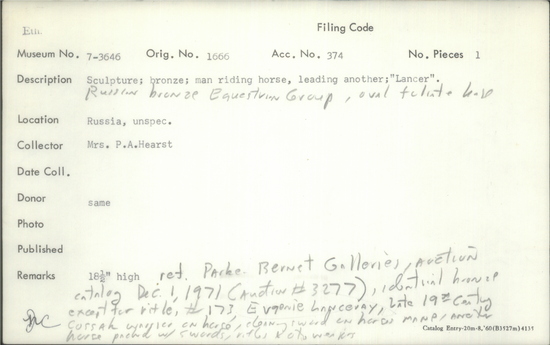 Eth.
Filing Code
Museum No. 7-3646 Orig. No. 1666 Acc. No. 374 No. Pieces 1
Description Sculpture; bronze; man riding horse, leading another; "Lancer".
Russian bronze Equestrian Group, oval foliate base
Location Russia, unspec.
Collector Mrs. P.A.Hearst
Date Coll.
Donor same
Photo
Published
Remarks 18½" high ref. Parke Bernet Galleries, auction
catalog Dec. 1, 1971 (Auction #3277), identical bronze
except for title, #173 Evgenie Lanceray, late 19th Century
Cossak warrior on horse, cleaning sword on horses mane, another
horse packed w/ swords,
Catalog Entry-20m-8,'60(B3527m)4139